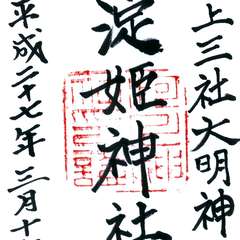 上三社大明神
淀姫神社
平成二十七年三月十